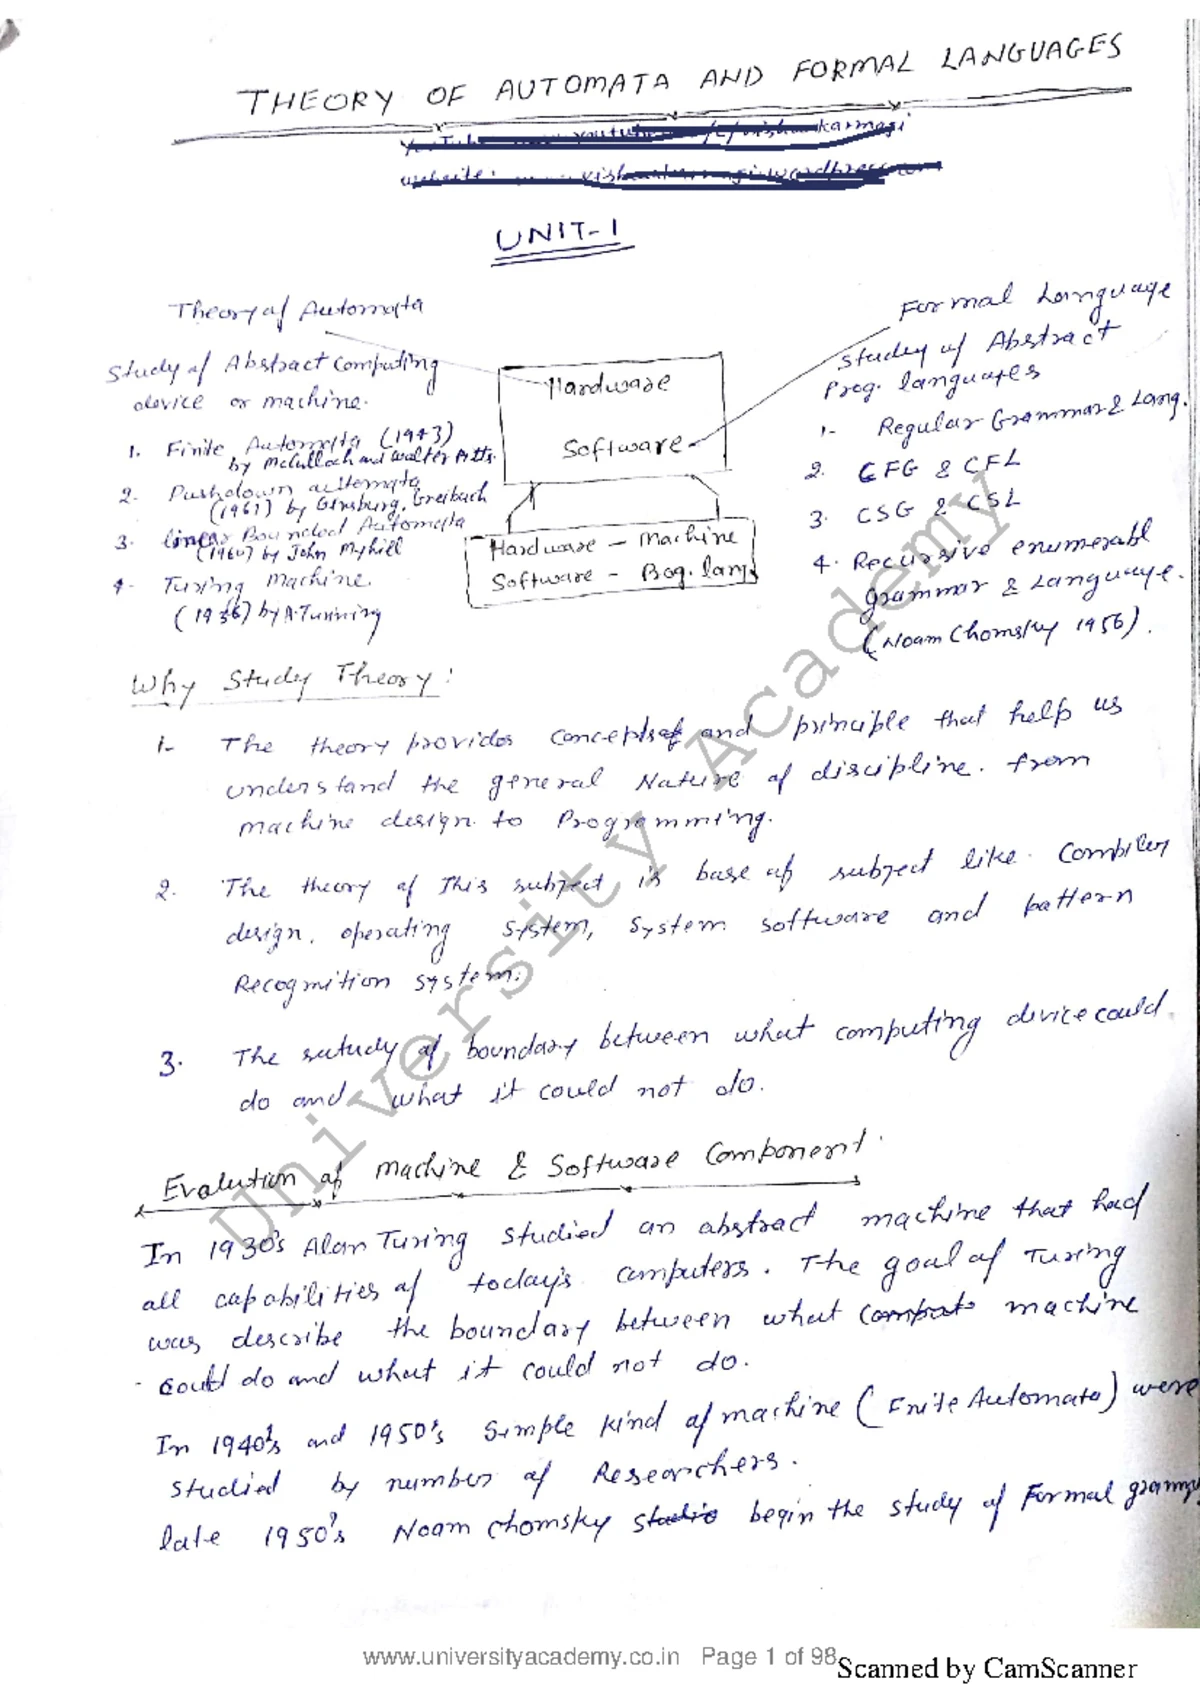 THEORY OF AUTOMATA AND FORMAL LANGUAGES
UNIT-1
Theory of Automata
Study of Abstract Computing
device or machine.
1. Finite Automata (1943)
by McCulloch and Walter Pitts.
2. Pushdown automata
(1961) by Ginsburg, Greibach
3. linear Bounded Automata
(1960) by John Myhill
4- Turing Machine.
(1936) by A. Turning
Hardware
Software
Hardware - Machine
Software - Prog. lang
Formal Language
Study of Abstract
Prog. languages
1- Regular Grammar & Lang.
2. CFG & CFL
3. CSG & CSL
4. Recursive enumerabl
grammar & Language.
(Noam Chomsky 1956).
Why Study Theory:
1- The theory provides concepts and principle that help us
understand the general Nature of discipline. from
machine design to Programming.
2. The theory of This subject is base of subject like. Compiler
design, operating System, System software and pattern
Recognition system.
3. The sutudy of boundary between what computing device could
do and what it could not do.
Evalution of machine & Software Component.
In 1930's Alan Turing studied an abstract machine that had
all capabilities of today's computers. The goal of Turing
was describe the boundary between what machine
could do and what it could not do.
In 1940's and 1950's Simple kind of machine (Finite Automata) were
studied by number of Researchers.
late 1950's Noam Chomsky begin the study of Formal
University Academy
www.universityacademy.co.in Page 1 of 98
Scanned by CamScanner